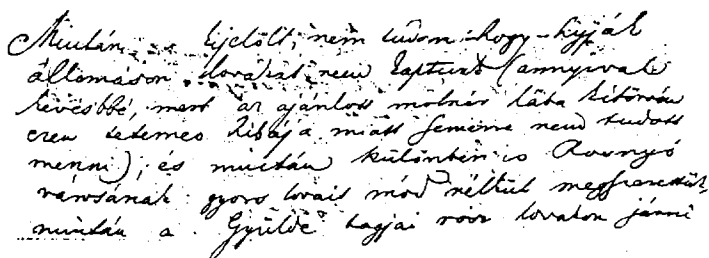 Miután a kijelölt, nem tudom hogy hijják
állomáson lovakat nem kaptunk (annyival
kevésbbé, mert az ajánlott molnár lába kitörvén
ezen tetemes hibája miatt semerre nem tudott
menni), és miután különben is Rozsnyó
városának gyors lovait mód nélkül megszerettük,
miután a Gyülde tagjai rosz lovakon járni